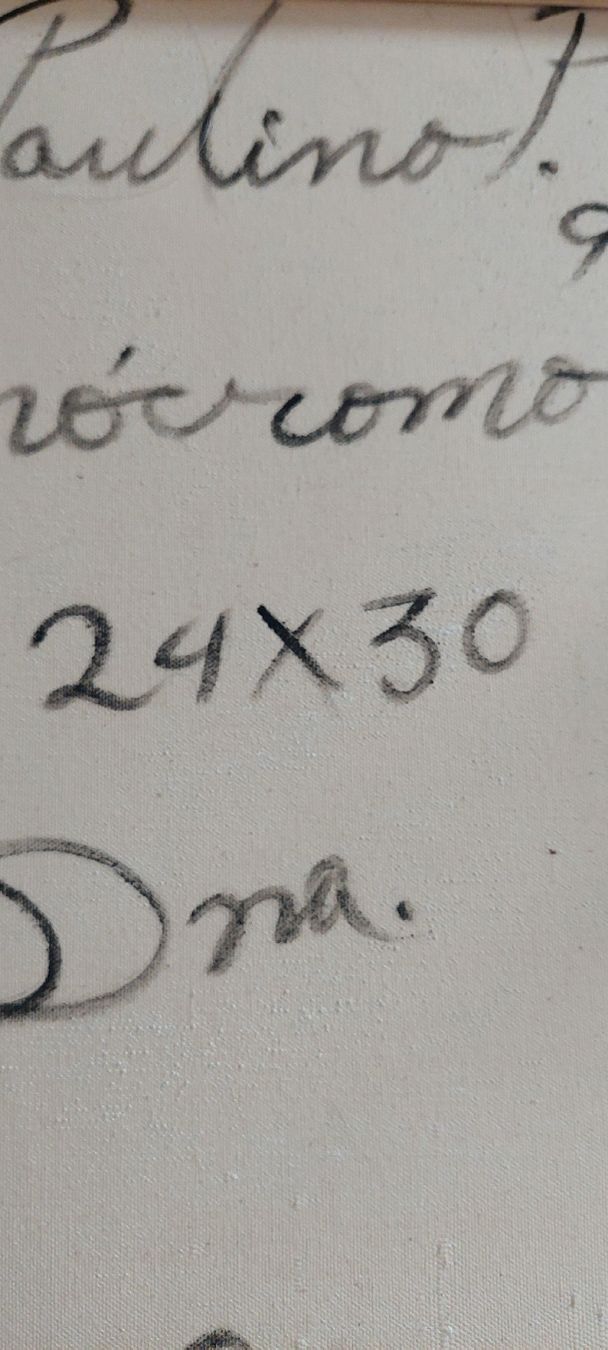 Paulino P.
9
nócromo
24X30
Dna.